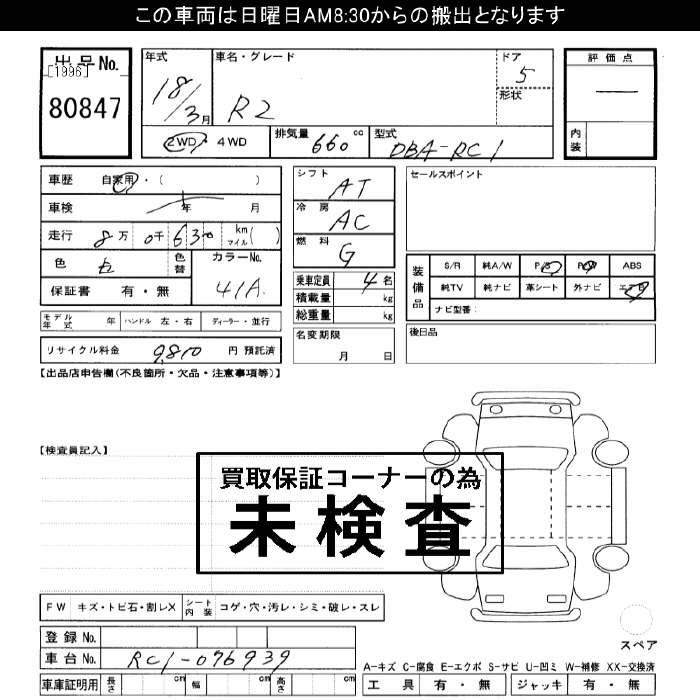 この車両は日曜日AM8:30からの搬出となります
出品No.
[1996]
80847
年式
18/3月
車名・グレード
R2
ドア
5
形状
評価点
—
内装
2WD・4WD
排気量 660 cc
型式 DBA-RC1
車歴 自家用・( )
車検 年 月
走行 8万 0千 630 km マイル( )
色
色替
カラーNo.
41A
保証書 有・無
シフト AT
冷房 AC
燃料 G
乗車定員 4 名
積載量 kg
総重量 kg
名変期限
月 日
セールスポイント
装備品
S/R 純A/W P/S P/W ABS
純TV 純ナビ 革シート 外ナビ エアB
ナビ型番:
後日品
モデル年式 年 ハンドル 左・右 ディーラー・並行
リサイクル料金 9,810 円 預託済
【出品店申告欄(不良箇所・欠品・注意事項等)】
【検査員記入】
買取保証コーナーの為
未検査
FW キズ・トビ石・割レX シート内装 コゲ・穴・汚レ・シミ・破レ・スレ
登録No.
車台No. RC1-076939
車庫証明用 長さ cm 幅 cm 高さ cm
スペア
A-キズ C-腐食 E-エクボ S-サビ U-凹ミ W-補修 XX-交換済
工具 有・無 ジャッキ 有・無